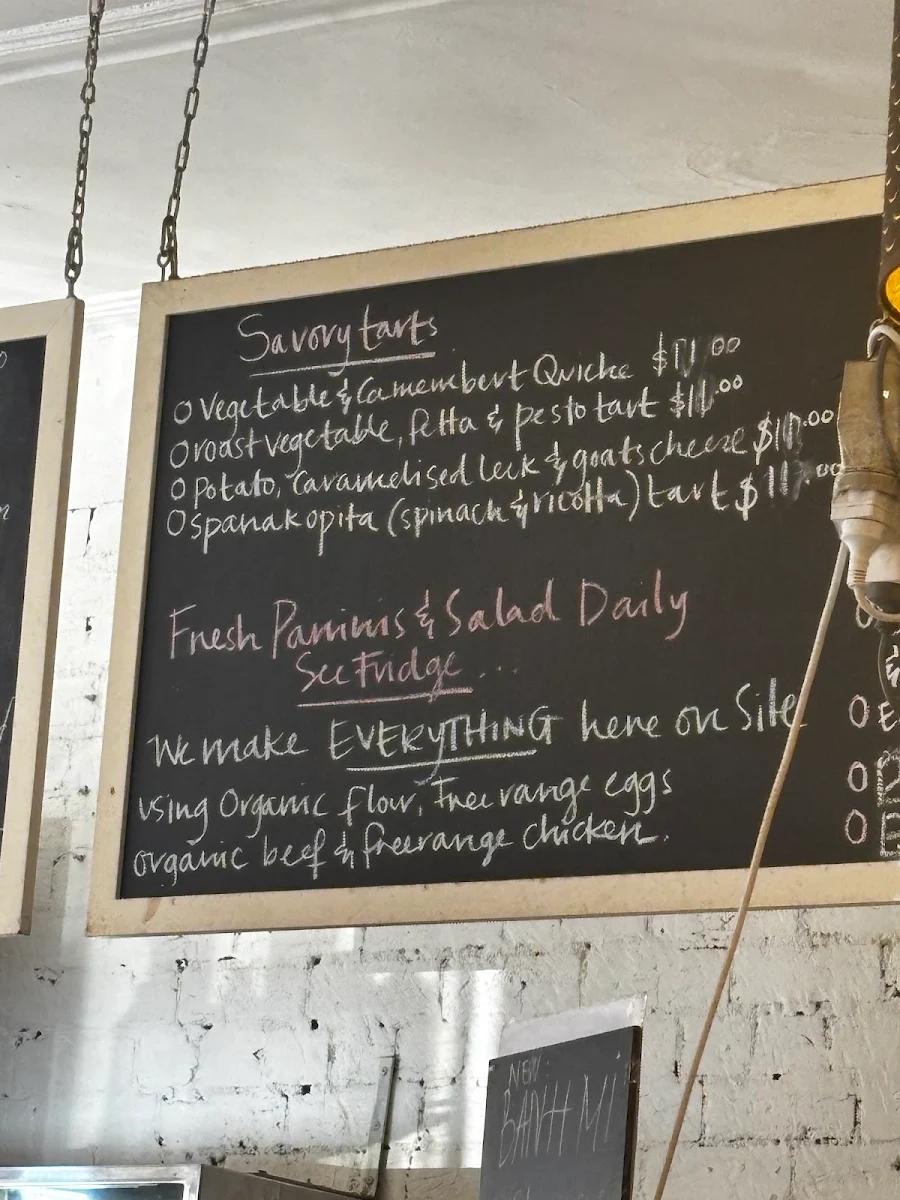 Savory tarts
O Vegetable & Camembert Quiche $11.00
O roast vegetable, Fetta & pesto tart $11.00
O Potato, Caramelised leek & goats cheese $11.00
O Spanakopita (spinach & ricotta) tart $11.00
Fresh Paninis & Salad Daily
See Fridge ...
We make EVERYTHING here on Site
using Organic flour, Free range eggs
organic beef & freerange chicken.
NEW:
BANH MI